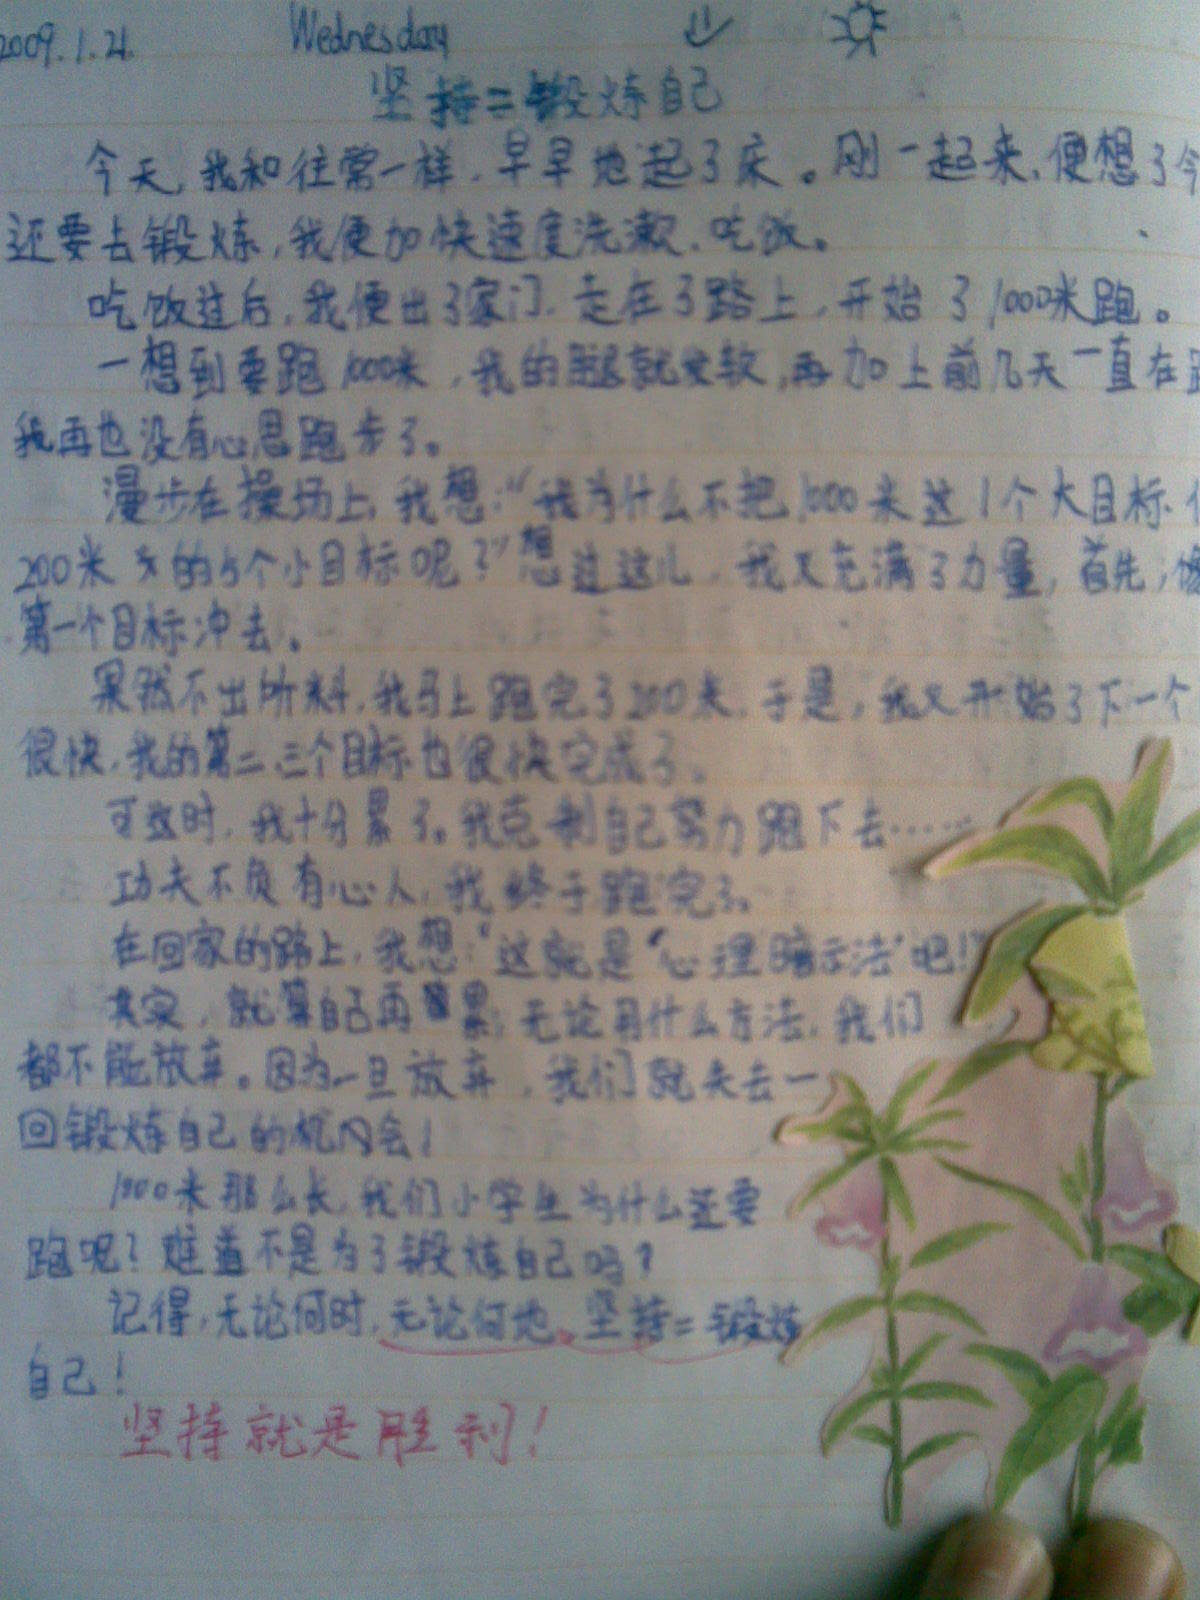 2009.1.21. Wednesday
坚持=锻炼自己
今天,我和往常一样,早早地起了床。刚一起来,便想了今
还要去锻炼,我便加快速度洗漱、吃饭。
吃饭过后,我便出了家门,走在了路上,开始了1000米跑。
一想到要跑1000米,我的腿就发软,再加上前几天一直在
我再也没有心思跑步了。
漫步在操场上,我想:“我为什么不把1000米这1个大目标
200米 的5个小目标呢?”想过这儿,我又充满了力量,首先,
第一个目标冲去。
果然不出所料,我马上跑完了200米,于是,我又开始了下一个
很快,我的第二、三个目标也很快完成了。
可这时,我十分累了。我克制自己努力跑下去……
功夫不负有心人,我终于跑完了。
在回家的路上,我想:“这就是“心理暗示法”吧!”
其实,就算自己再 累,无论用什么方法,我们
都不能放弃。因为一旦放弃,我们就失去一
回锻炼自己的机会!
1000米那么长,我们小学生为什么还要
跑呢?难道不是为了锻炼自己吗?
记得,无论何时,无论何地,坚持=锻炼
自己!
坚持就是胜利!